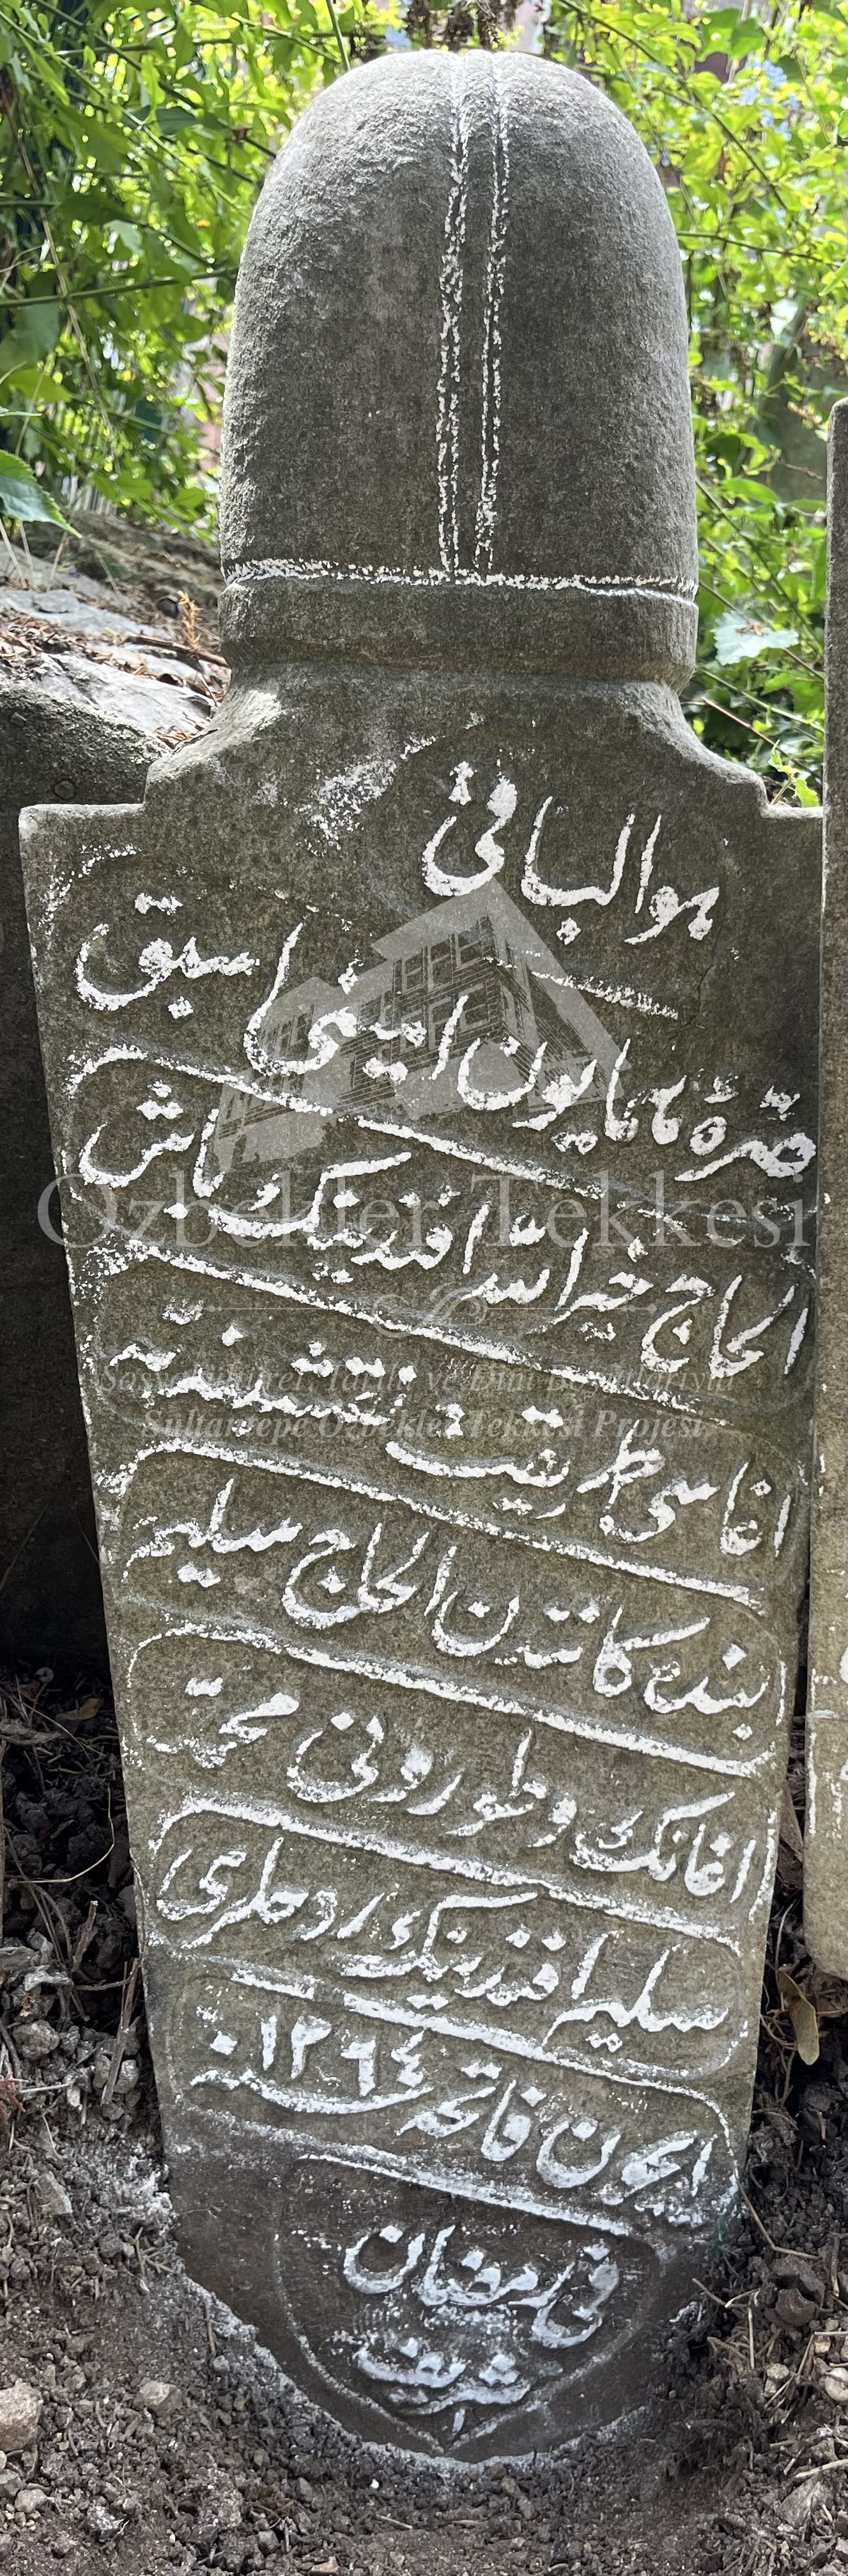 هو الباقی
صرۀ همایون امینی اسبق
الحاج خیرالله افندینك باش
اغاسی طریقت نقشبندیه
بندهكانندن الحاج سلیم
اغانك و طورونی محمد
سلیم افندینك روحلری
ایچون فاتحه سنه ١٢٦٤
فی رمضان
شریف
Özbekler Tekkesi
Sosyokültürel, Tarihi ve Dini Boyutlarıyla
Sultantepe Özbekler Tekkesi Projesi